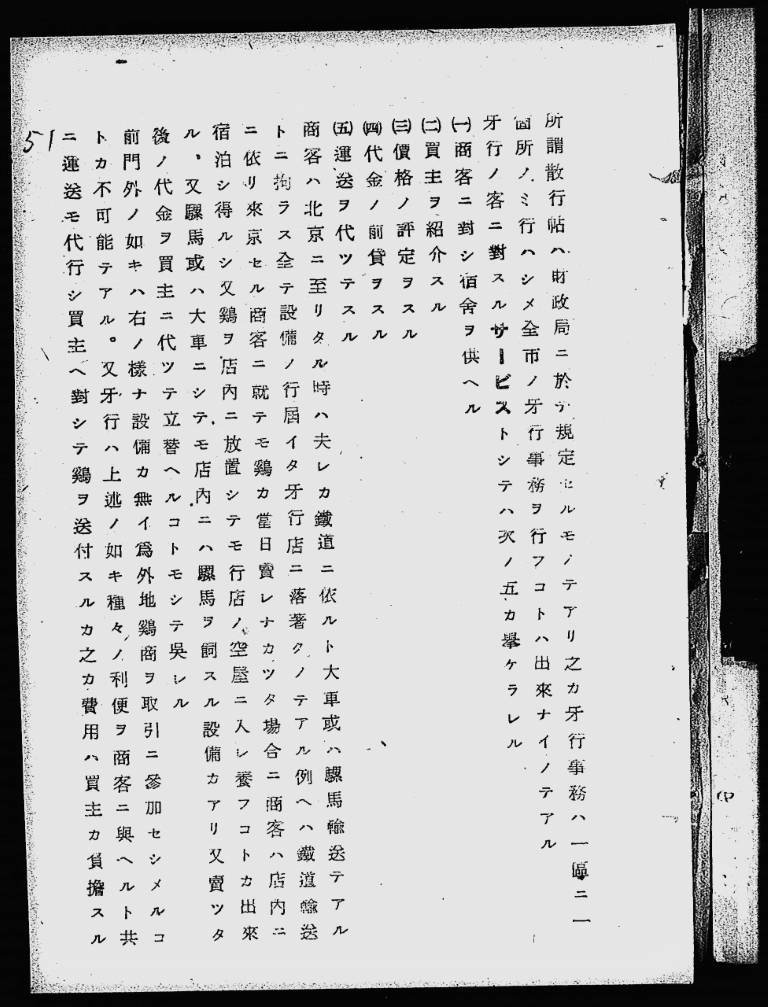 所謂散行帖ハ財政局ニ於テ規定セルモノテアリ之カ牙行事務ハ一區ニ一
箇所ノミ行ハシメ全市ノ牙行事務ヲ行フコトハ出來ナイノテアル
牙行ノ客ニ對スルサービストシテハ次ノ五カ擧ケラレル
㈠商客ニ對シ宿舍ヲ供ヘル
㈡買主ヲ紹介スル
㈢價格ノ評定ヲスル
㈣代金ノ前貸ヲスル
㈤運送ヲ代ツテスル
商客ハ北京ニ至リタル時ハ夫レカ鐵道ニ依ルト大車或ハ騾馬輸送テアル
トニ拘ラス全テ設備ノ行屆イタ牙行店ニ落著クノテアル例ヘハ鐵道輸送
ニ依リ來京セル商客ニ就テモ鷄カ當日賣レナカツタ場合ニ商客ハ店内ニ
宿泊シ得ルシ又鷄ヲ店内ニ放置シテモ行店ノ空屋ニ入レ養フコトカ出來
ル、又騾馬或ハ大車ニシテモ店内ニハ騾馬ヲ飼スル設備カアリ又賣ツタ
後ノ代金ヲ買主ニ代ツテ立替ヘルコトモシテ吳レル
前門外ノ如キハ右ノ樣ナ設備カ無イ爲外地鷄商ヲ取引ニ參加セシメルコ
トカ不可能テアル。又牙行ハ上述ノ如キ種々ノ利便ヲ商客ニ與ヘルト共
ニ運送モ代行シ買主ヘ對シテ鷄ヲ送付スルカ之カ費用ハ買主カ負擔スル
51